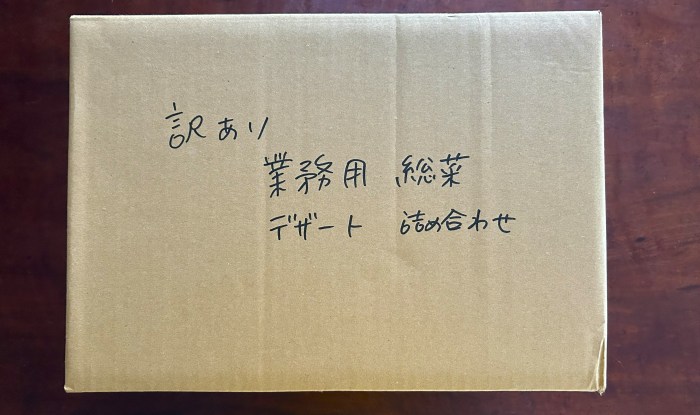 訳あり
業務用 総菜
デザート 詰め合わせ